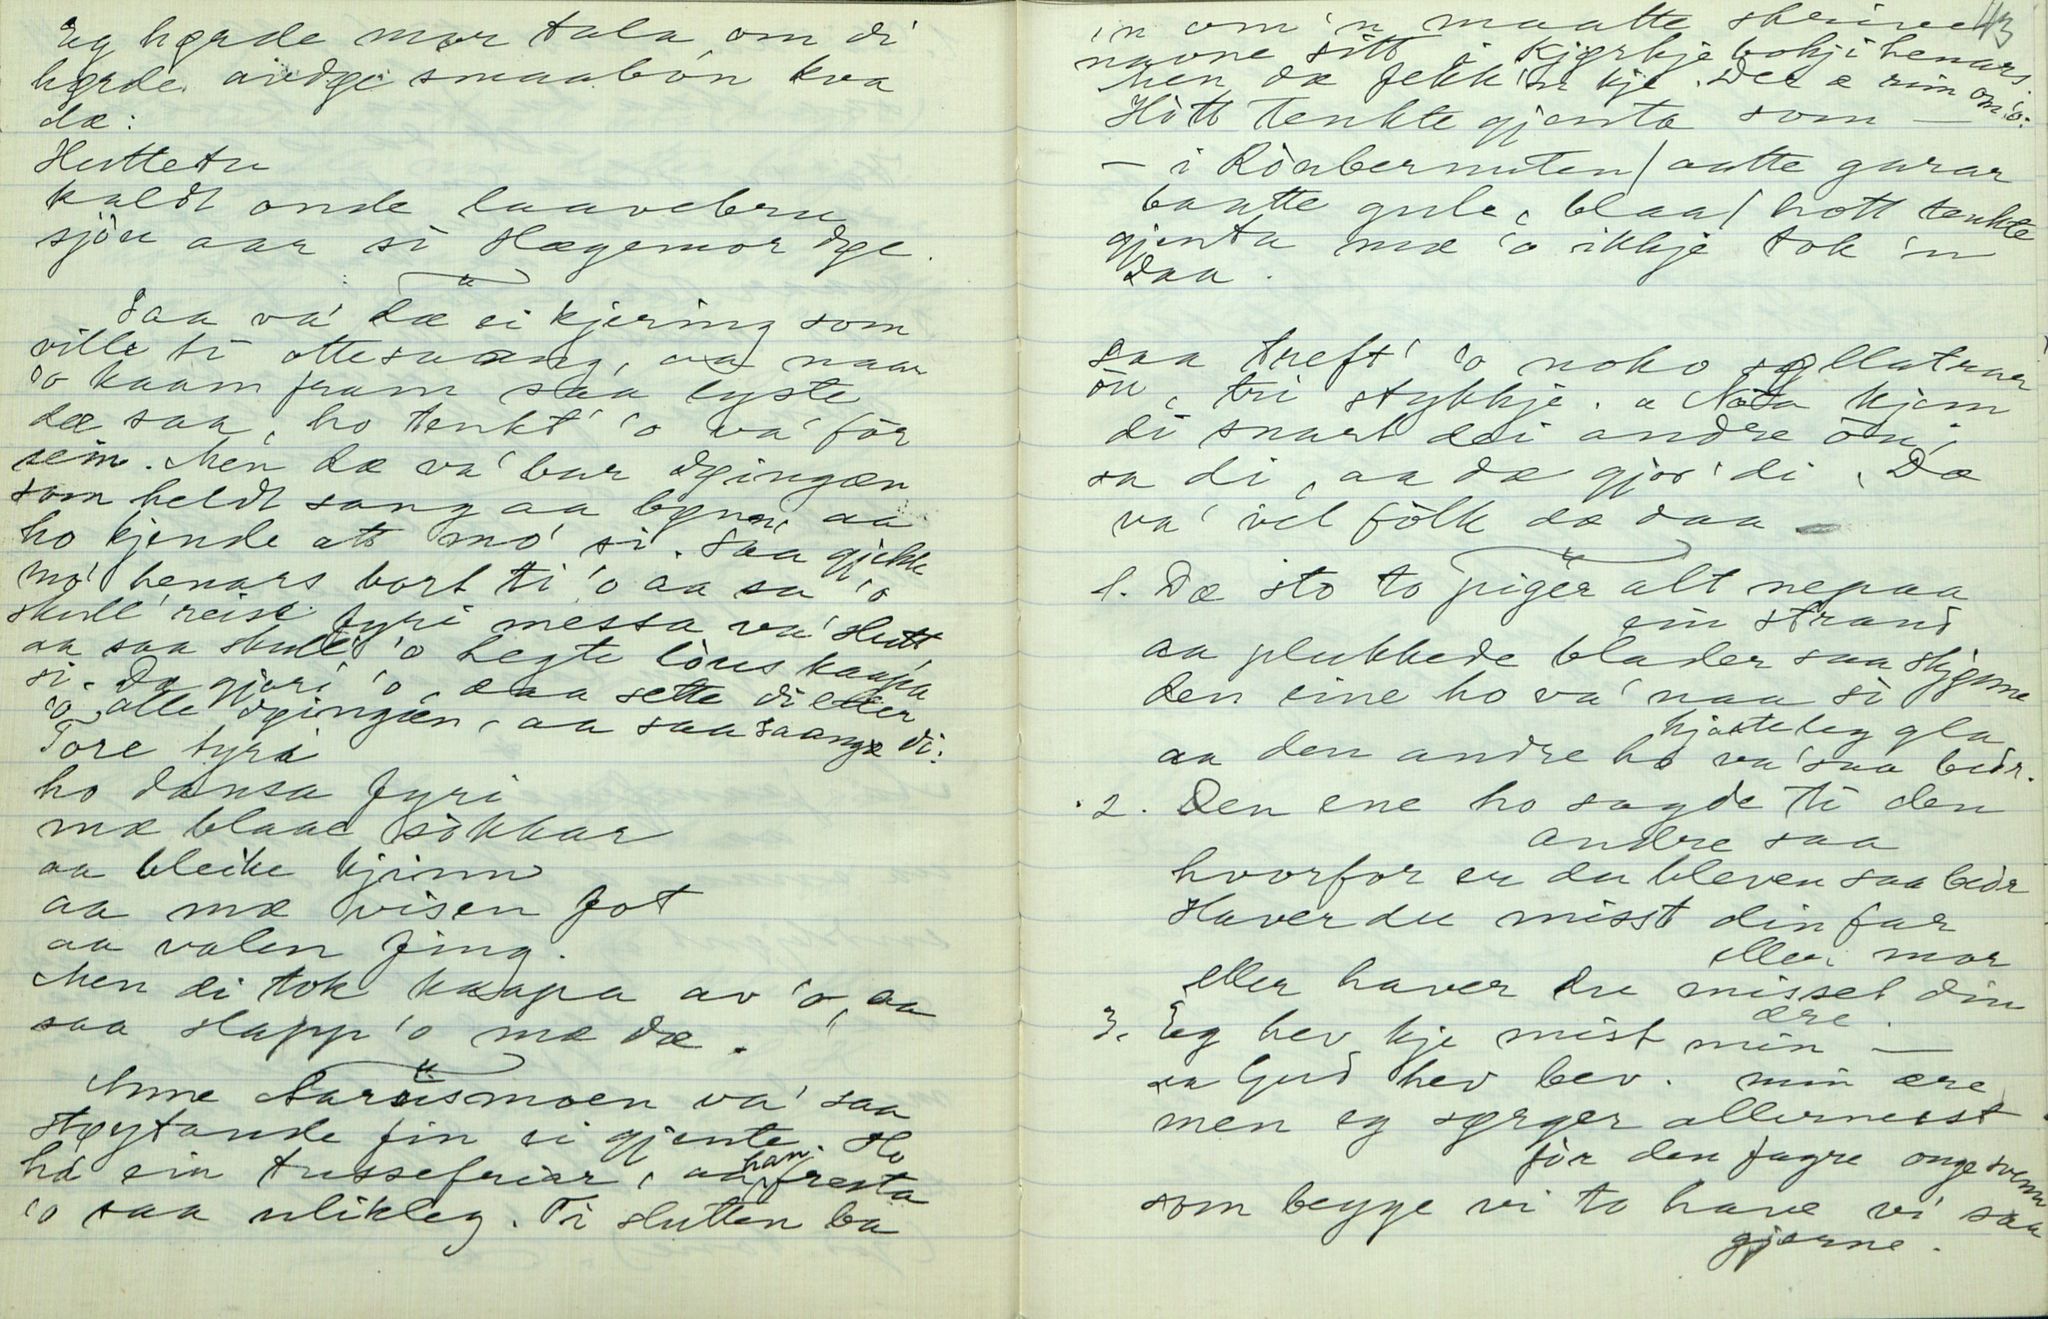 Eg hørde mor tala om di
hørde audge smaabón kva
dæ:
Huttetu
kaldt onde laavebru
sjøu aar si Hægemor døe.
Saa va' dæ ei kjering som
ville ti ottesaang, aa naar
'o kaam fram saa lyste
dæ saa, ho tenkt' 'o va' før
sein. Men dæ va' bar døingæn
som heldt sang aa bynn, aa
ho kjende att mo' si. Saa gjekk
mo' henars bort ti 'o aa sa 'o
skull' reise fyri messa va' slutt,
aa saa skull' 'o hegte løus kaapa
si. Dæ gjor' 'o, daa sette di etter
'o alle døingæn, aa saa saange di:
Tore tyri
ho dansa fyri
mæ blaae sòkkar
aa bleike kjinn
aa mæ visen fot
aa valen fing.
Men di tok kaapa av 'o, aa
saa slapp 'o mæ dæ.
Anne Aarusmoen va' saa
støytande fin ei gjente. Ho
ha ein tussefriar, aa han fresta
'o saa ulikleg. Ti slutten ba
43
'n om 'n maatte skrive
navne sitt i kjørkjebokji henars.
Men dæ fekk 'n kje. Det æ rim om 'o:
Hòtt tenkte gjenta som —
— i Rònbernuten / aatte garar
baatte gule, blaa / hott tenkte
gjenta mæ 'o ikkje tok 'n
daa.
Saa treft' 'o noko søllatraar
ón, tri stykkje. a Nòta kjem
di snart dei andre òn,
sa di, aa dæ gjor' di. Dæ
va' vel fòlk dæ daa
1. Dæ sto to piger alt nepaa
ein strand
aa plukkede blader saa skjønne
den eine ho va' naa si
hjarteleg gla
aa den andre ho va' saa beðr.
2. Den ene ho sagde ti den
andre saa
hvorfor er du bleven saa beðr
Haver du misst din far
eller mor
eller haver du misset din
ære.
3. Eg hev kje mist min —
aa Gud hev bev. min ære
men eg sørger allermeist
før den fagre onge svenn
som begge vi to have vi saa
gjerne.